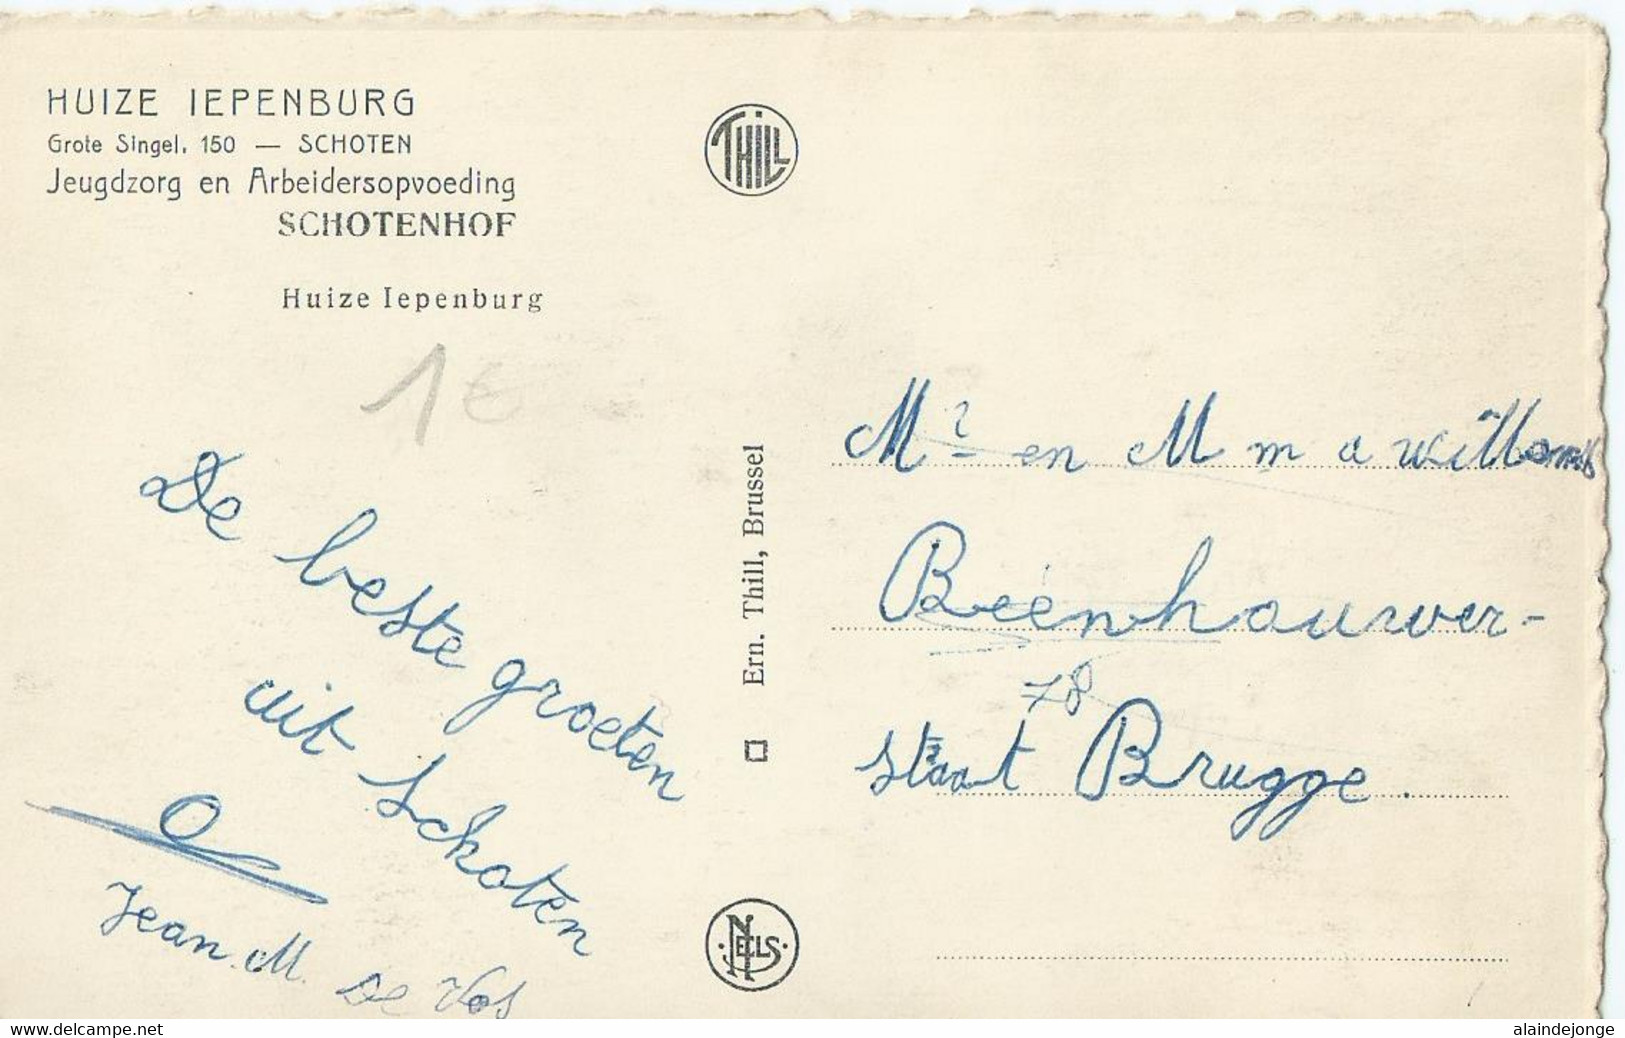 HUIZE IEPENBURG
Grote Singel, 150 — SCHOTEN
Jeugdzorg en Arbeidersopvoeding
SCHOTENHOF
Huize Iepenburg
1 €
De beste groeten
uit Schoten
Jean M. De Vos
THILL
Ern. Thill, Brussel
NELS
Mr en M m a willems
Beenhouwer-
78
staat Brugge.
www.delcampe.net
alaindejonge